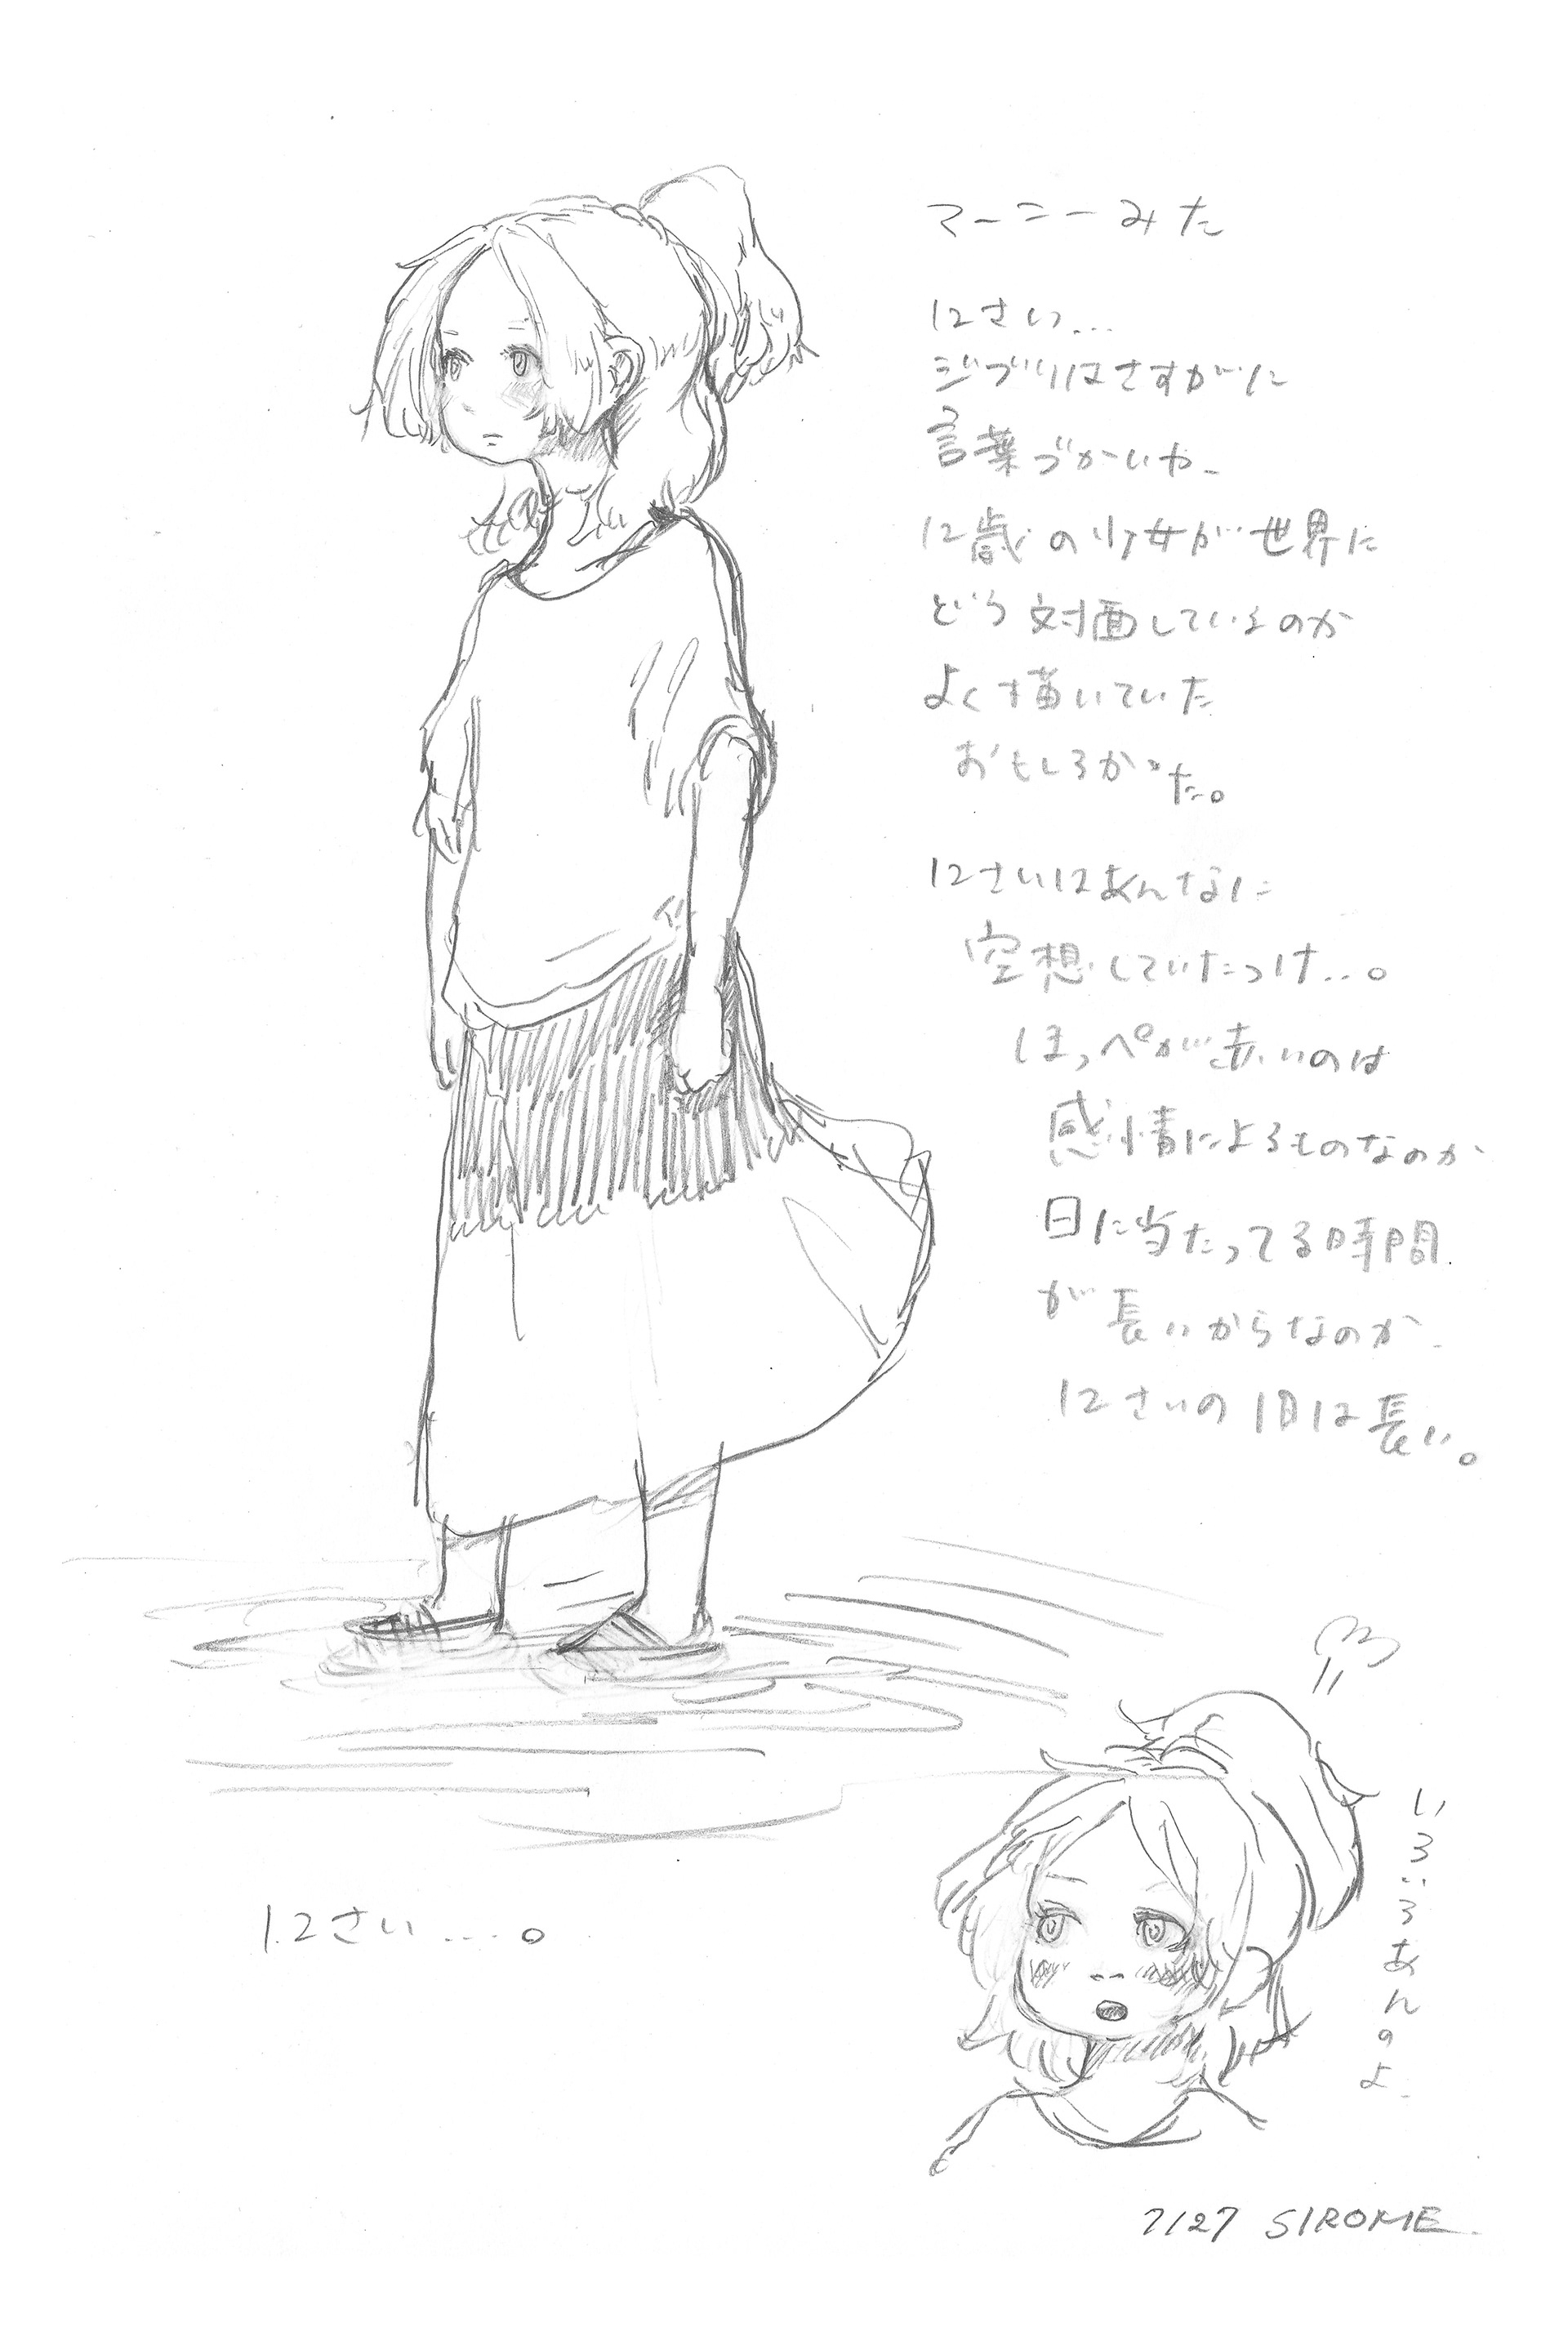 マーニーみた
12さい…
ジブリはさすがに
言葉づかいや
12歳の少女が世界に
どう対面しているのか
よく描いていた
おもしろかった。
12さいはあんなに
空想していたっけ…。
ほっぺが赤いのは
感情によるものなのか
日に当たってる時間
が長いからなのか
12さいの1日は長い。
12さい…。
いろいろあんのよ
7/27 SIROME